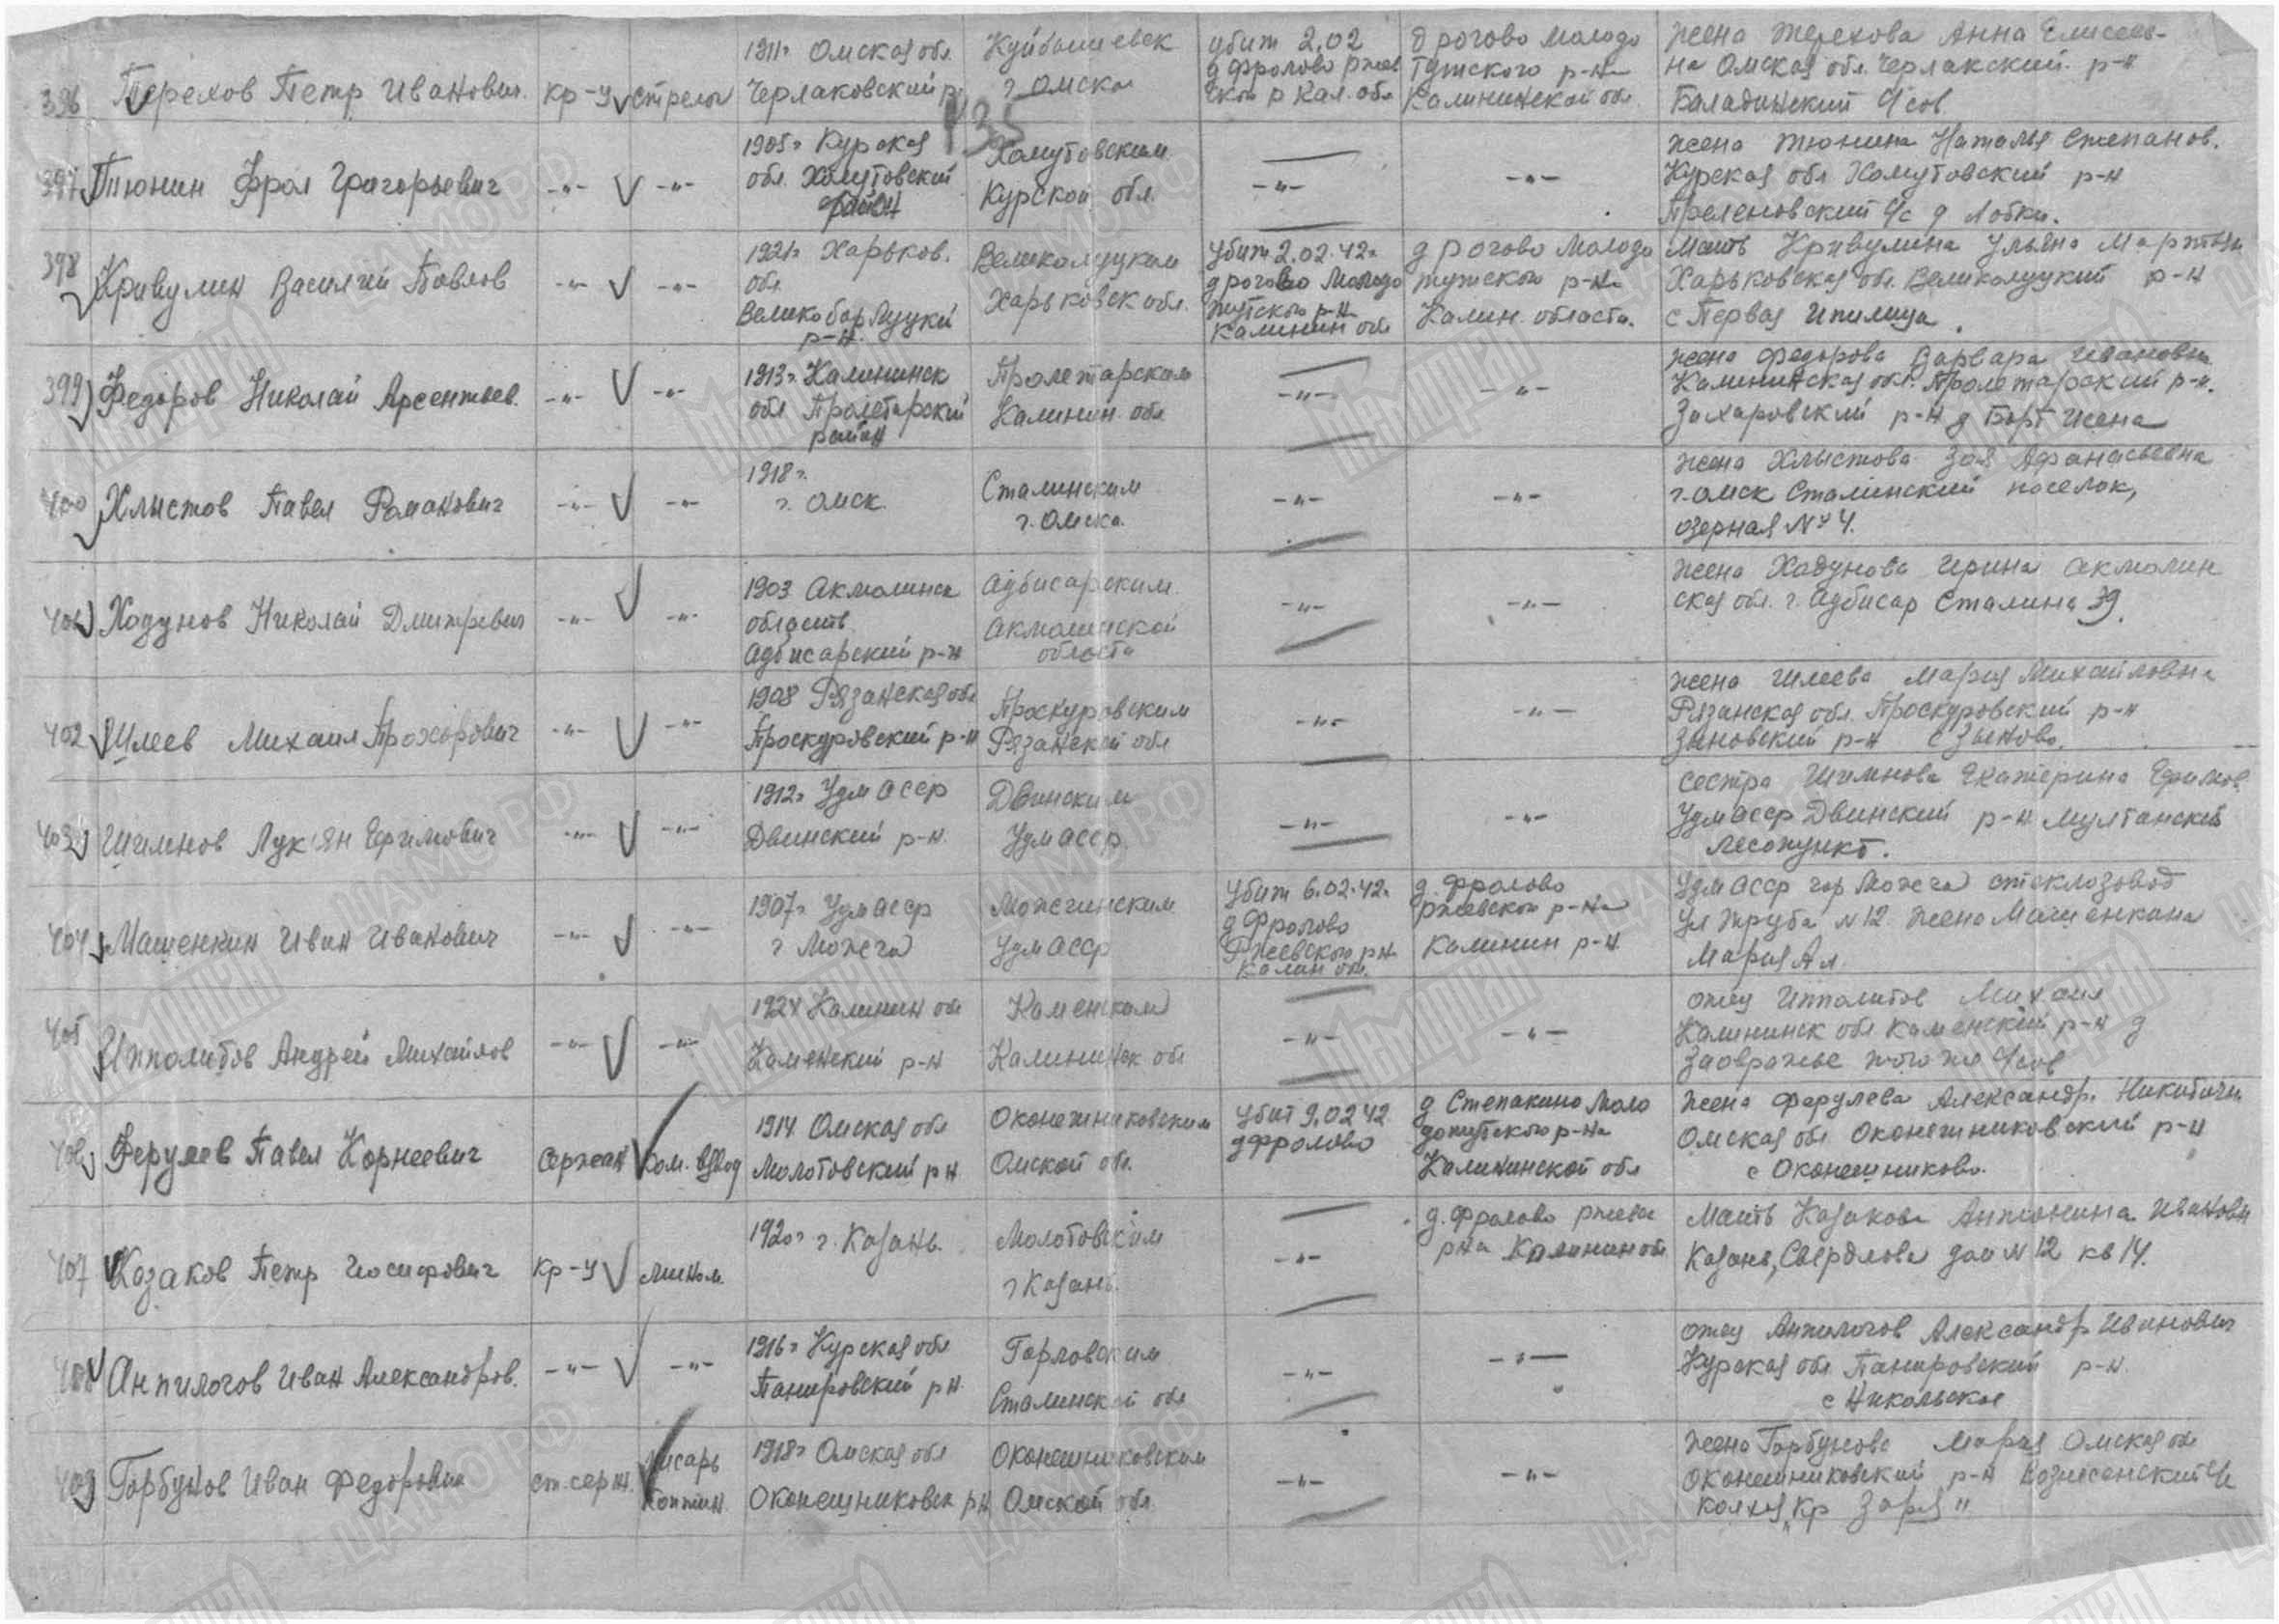 396 Терехов Петр Иванович кр-ц стрелок 1911г Омская обл. Черлаковский р. Куйбышевск г Омска убит 2.02 д Фролово Ржев ской р Кал. обл д Рогово Молодо Тутского р-на Калининской обл жена Терехова Анна Елисеев-
на Омская обл. Черлакский р-н
Баладинский с/сов
435
397 Тюнин Фрол Григорьевич -"- -"- 1905г Курская обл. Хомутовский район Хомутовским Курской обл. -"- -"- жена Тюнина Наталья Степанов.
Курская обл Хомутовский р-н
с/с д Лобки.
398 Кривулин Василий Павлов -"- -"- 1921г Харьков. обл. Великобарлуцкй р-н. Великолуцким Харьковск обл. убит 2.02.42г д Рогово Молодо тутского р-на Калинин обл д Рогово Молодо тутского р-на Калин. области. Мать Кривулина Ульяна Мартын
Харьковская обл. Великолуцкий р-н
с Первая
399 Федоров Николай Арсентьев. -"- -"- 1913г. Калининск обл Пролетарский район Пролетарским Калинин обл -"- -"- жена Федорова Варвара Ивановна
Калининская обл. Пролетарский р-н.
Захаровский р-н д
400 Хлыстов Павел Романович -"- -"- 1918г. г. Омск. Сталинским г. Омска. -"- -"- жена Хлыстова Зоя Афанасьевна
г. Омск Сталинский поселок,
озерная № 4.
401 Ходунов Николай Дмитревич -"- -"- 1903 Акмолинск область Адбисарский р-н Адбисарским Акмолинской области -"- -"- жена Ходунова Ирина Акмолин
ская обл. г. Адбисар Сталина 39.
402 Шлеев Михаил Прохорович -"- -"- 1908 Рязанская обл Проскуровский р-н Проскуровским Рязанской обл -"- -"- жена Шлеева Мария Михайловна
Рязанская обл. Проскуровский р-н
Зыковский р-н с Зыково.
403 Шимнов Лук'ян Ефимович -"- -"- 1912г УдмАССР Двинский р-н. Двинским УдмАССР. -"- -"- сестра Шимнова Екатерина Ефимов.
УдмАССР Двинский р-н Мултанский
лесопункт.
404 Машенкин Иван Иванович -"- -"- 1907г УдмАССР г Можга Можгинским УдмАССР убит 6.02.42г д Фролово Ржевского рн Калин обл. д. Фролово Ржевской р-на Калинин р-н. УдмАССР гор Можга стеклозавод
ул Труба № 12 жена Машенкина
Мария Ал.
405 Ипполитов Андрей Михайлов -"- -"- 1924 Калинин обл Каменский р-н Каменским Калининск обл -"- -"- отец Ипполитов Михаил
Калининск обл Каменский р-н д
Заовражье того же с/сов
406 Ферулев Павел Корнеевич Сержан Ком. взвод 1914 Омская обл Молотовский рн Оконешниковским Омской обл. убит 9.02 42 д Фролово д Степакино Моло дотутского р-на Калининской обл жена Ферулева Александр. Никитичн.
Омская обл Оконешниковский р-н
с Оконешниково.
407 Казаков Петр Иосифович кр-ц мином. 1920г г. Казань. Молотовским г Казань. -"- д. Фролово Ржевс рна Калинин обл. Мать Казакова Антонина Ивановн
Казань, Свердлова дом № 12 кв 14.
408 Анпилогов Иван Александров. -"- -"- 1916г Курская обл Панировский рн. Горловским Сталинской обл -"- -"- отец Анпилогов Александр Иванович
Курская обл Панировский р-н.
с Никольское
409 Горбунов Иван Федорович ст. серж. писарь 1918г Омская обл Оконешниковск рн Оконешниковским Омской обл -"- -"- жена Горбунова Мария Омская обл
Оконешниковский р-н Вознесенский с/с
колхоз „Кр Заря"
МЕМОРИАЛ
ЦАМО РФ